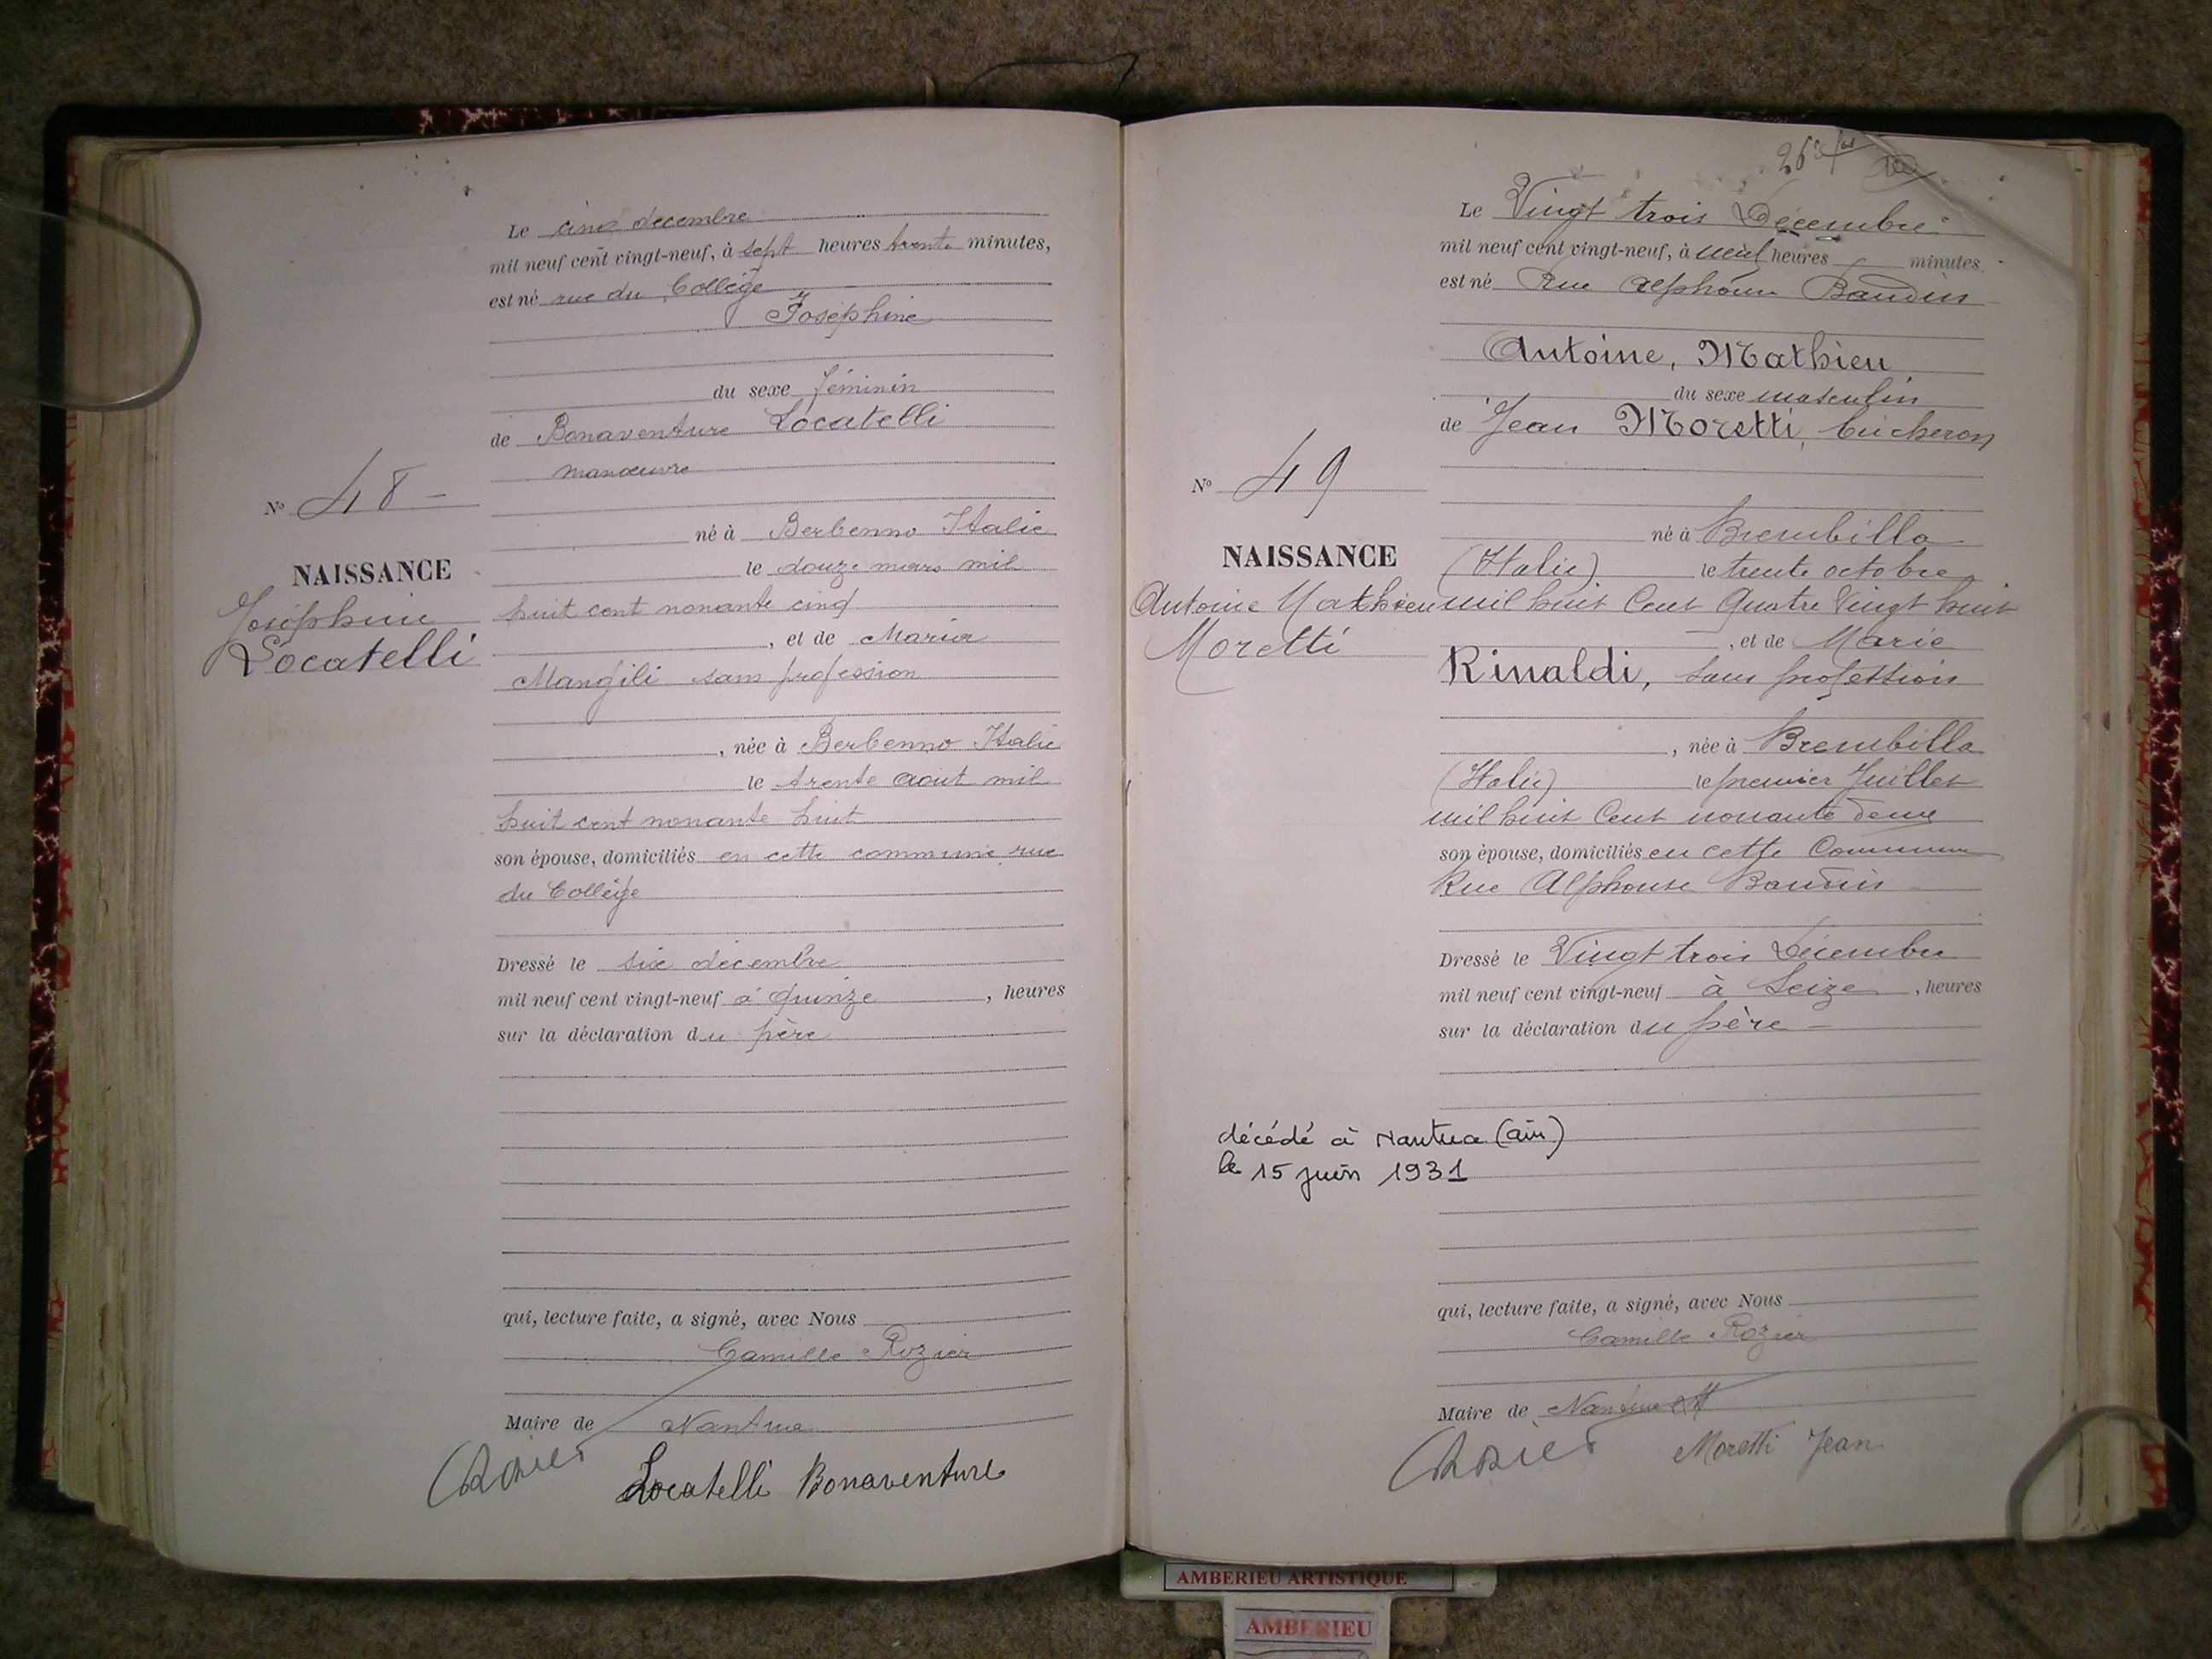 Le cinq decembre
mil neuf cent vingt-neuf, à sept heures trente minutes,
est né rue du Collège
Joséphine
du sexe féminin
de Bonaventure Locatelli
manœuvre
né à Berbenno Italie
le douze mars mil
huit cent nonante cinq
, et de Maria
Mangili sans profession
, née à Berbenno Italie
le trente août mil
huit cent nonante huit
son épouse, domiciliés en cette commune rue
du Collège
Dressé le six décembre
mil neuf cent vingt-neuf à quinze , heures
sur la déclaration du père
qui, lecture faite, a signé, avec Nous
Camille Rozier
Maire de Nantua
Rozier
Locatelli Bonaventure
No 48 -
NAISSANCE
Joséphine
Locatelli
Le Vingt trois Décembre
mil neuf cent vingt-neuf, à neuf heures minutes
est né Rue Alphonse Baudin
Antoine, Mathieu
du sexe masculin
de Jean Moretti, bûcheron
né à Brembilla
(Italie) le trente octobre
mil huit Cent Quatre Vingt huit
, et de Marie
Rinaldi, sans profession
, née à Brembilla
(Italie) le premier Juillet
mil huit Cent nonante deux
son épouse, domiciliés en cette Commune
Rue Alphonse Baudin
Dressé le Vingt trois Décembre
mil neuf cent vingt-neuf à Seize , heures
sur la déclaration du père -
qui, lecture faite, a signé, avec Nous
Camille Rozier
Maire de Nantua
Rozier Moretti Jean
No 49
NAISSANCE
Antoine Mathieu
Moretti
décédé à Nantua (ain)
le 15 juin 1931
AMBERIEU ARTISTIQUE
AMBERIEU